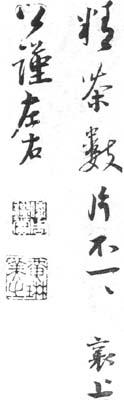 精茶數片不一一 襄上
公謹左右